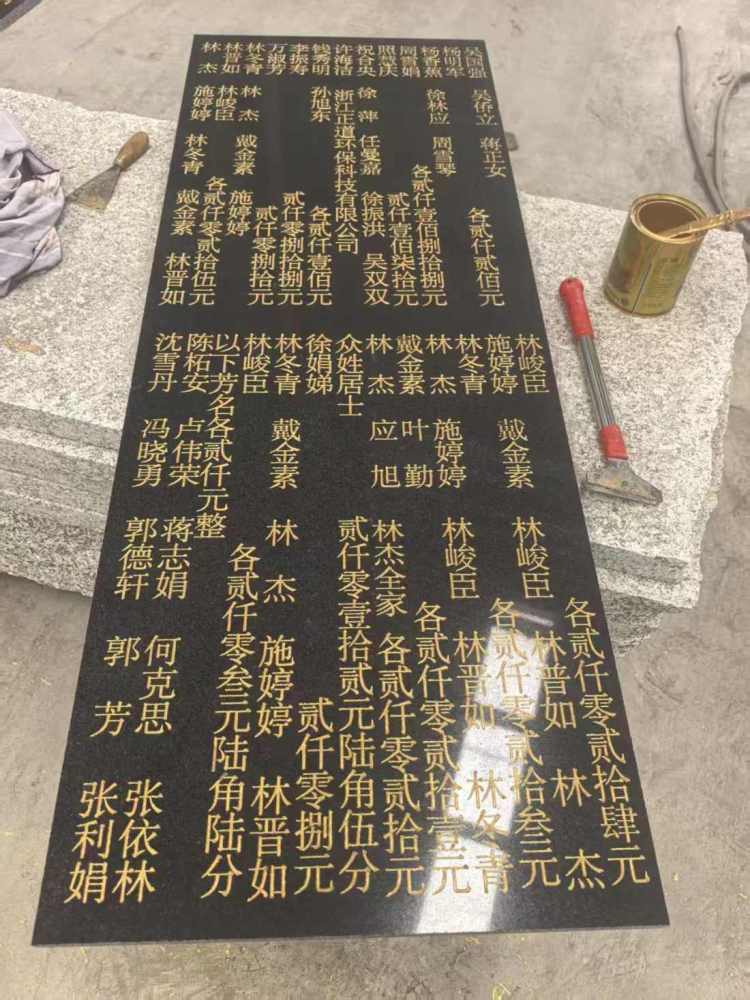 吴国强 吴侨立 蒋正女
杨明军 各贰仟贰佰元
杨香蕉 徐林应 周雪琴
周雪娟 各贰仟壹佰捌拾捌元
照慧庆 贰仟壹佰柒拾元
祝合央 徐萍 任曼嘉 徐振洪 吴双双
许海洁 浙江正道环保科技有限公司
钱秀明 孙旭东 各贰仟壹佰元
李振寿 贰仟零捌拾捌元
万淑芳 贰仟零捌拾元
林冬青 林杰 戴金素 施婷婷
林晋如 林峻臣 各贰仟零贰拾伍元
林杰 施婷婷 林冬青 戴金素 林晋如
林峻臣 各贰仟零贰拾肆元
施婷婷 戴金素 林峻臣 林晋如 林杰
林冬青 各贰仟零贰拾叁元
林杰 施婷婷 林峻臣 林晋如 林冬青
戴金素 叶勤 各贰仟零贰拾壹元
林杰 应旭 林杰全家 各贰仟零贰拾元
众姓居士 贰仟零壹拾贰元陆角伍分
徐娟娣 贰仟零捌元
林冬青 戴金素 林杰 施婷婷 林晋如
林峻臣 各贰仟零叁元陆角陆分
以下芳名各贰仟元整
陈柘安 卢伟荣 蒋志娟 何克思 张依林
沈雪丹 冯晓勇 郭德轩 郭芳 张利娟